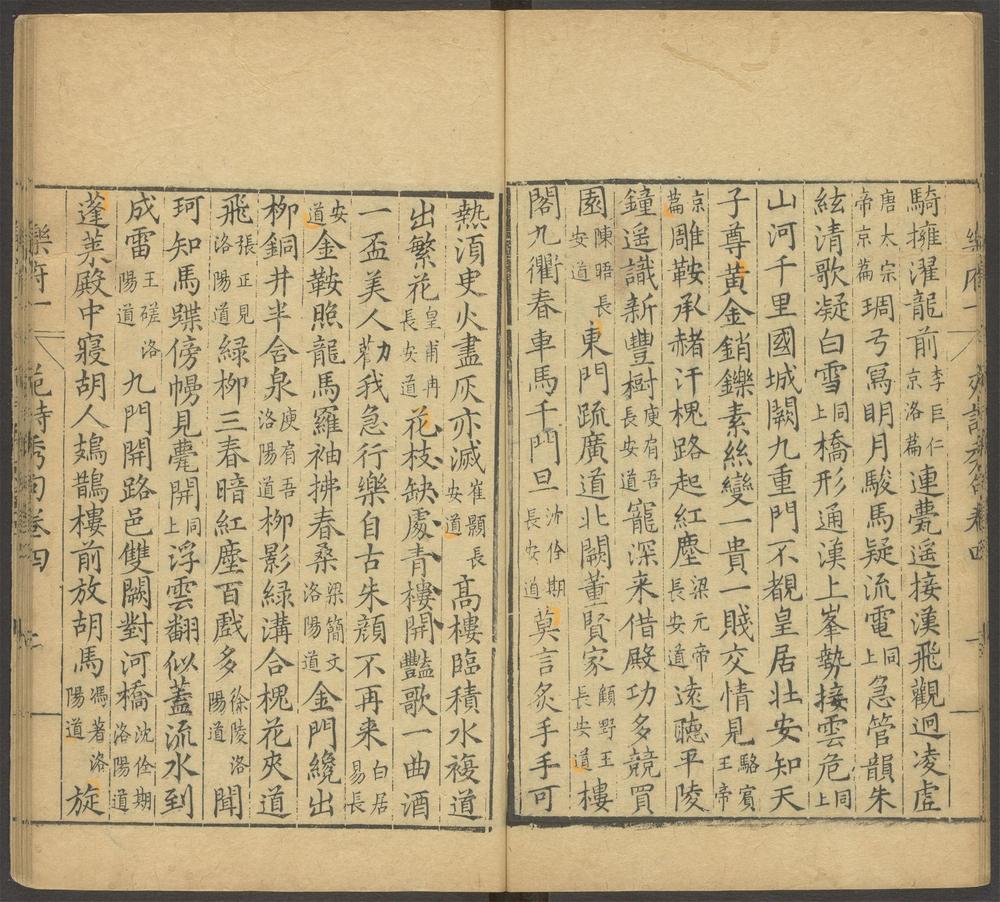 騎擁濯龍前李巨仁京洛篇連甍遥接漢飛觀迥凌虛
唐太宗帝京篇琱弓寫明月駿馬疑流電同上急管韻朱
絃清歌凝白雪同上橋形通漢上峯勢接雲危同上
山河千里國城闕九重門不覩皇居壯安知天
子尊黃金銷鑠素絲變一貴一賤交情見駱賓王帝
京篇雕鞍承赭汗槐路起紅塵梁元帝長安道遠聽平陵
鐘遥識新豐樹庾有吾長安道寵深来借殿功多競買
園陳晤長安道東門疏廣道北闕董賢家顧野王長安道樓
閣九衢春車馬千門旦沈佺期長安道莫言炙手手可
熱須臾火盡灰亦滅崔顥長安道高樓臨積水複道
出繁花皇甫冉長安道花枝缺處青樓開豔歌一曲酒
一盃美人勸我急行樂自古朱顏不再来白居易長
安道金鞍照龍馬羅袖拂春桑梁簡文洛陽道金門纔出
柳銅井半含泉庾有吾洛陽道柳影緑溝合槐花夾道
飛張正見洛陽道緑柳三春暗紅塵百戲多徐陵洛陽道聞
珂知馬蹀傍幰見甍開同上浮雲翻似蓋流水到
成雷王瑳洛陽道九門開路邑雙闕對河橋沈佺期洛陽道
蓬莱殿中寢胡人鳷鵲樓前放胡馬馮著洛陽道旋
樂府一 詩秀句卷四